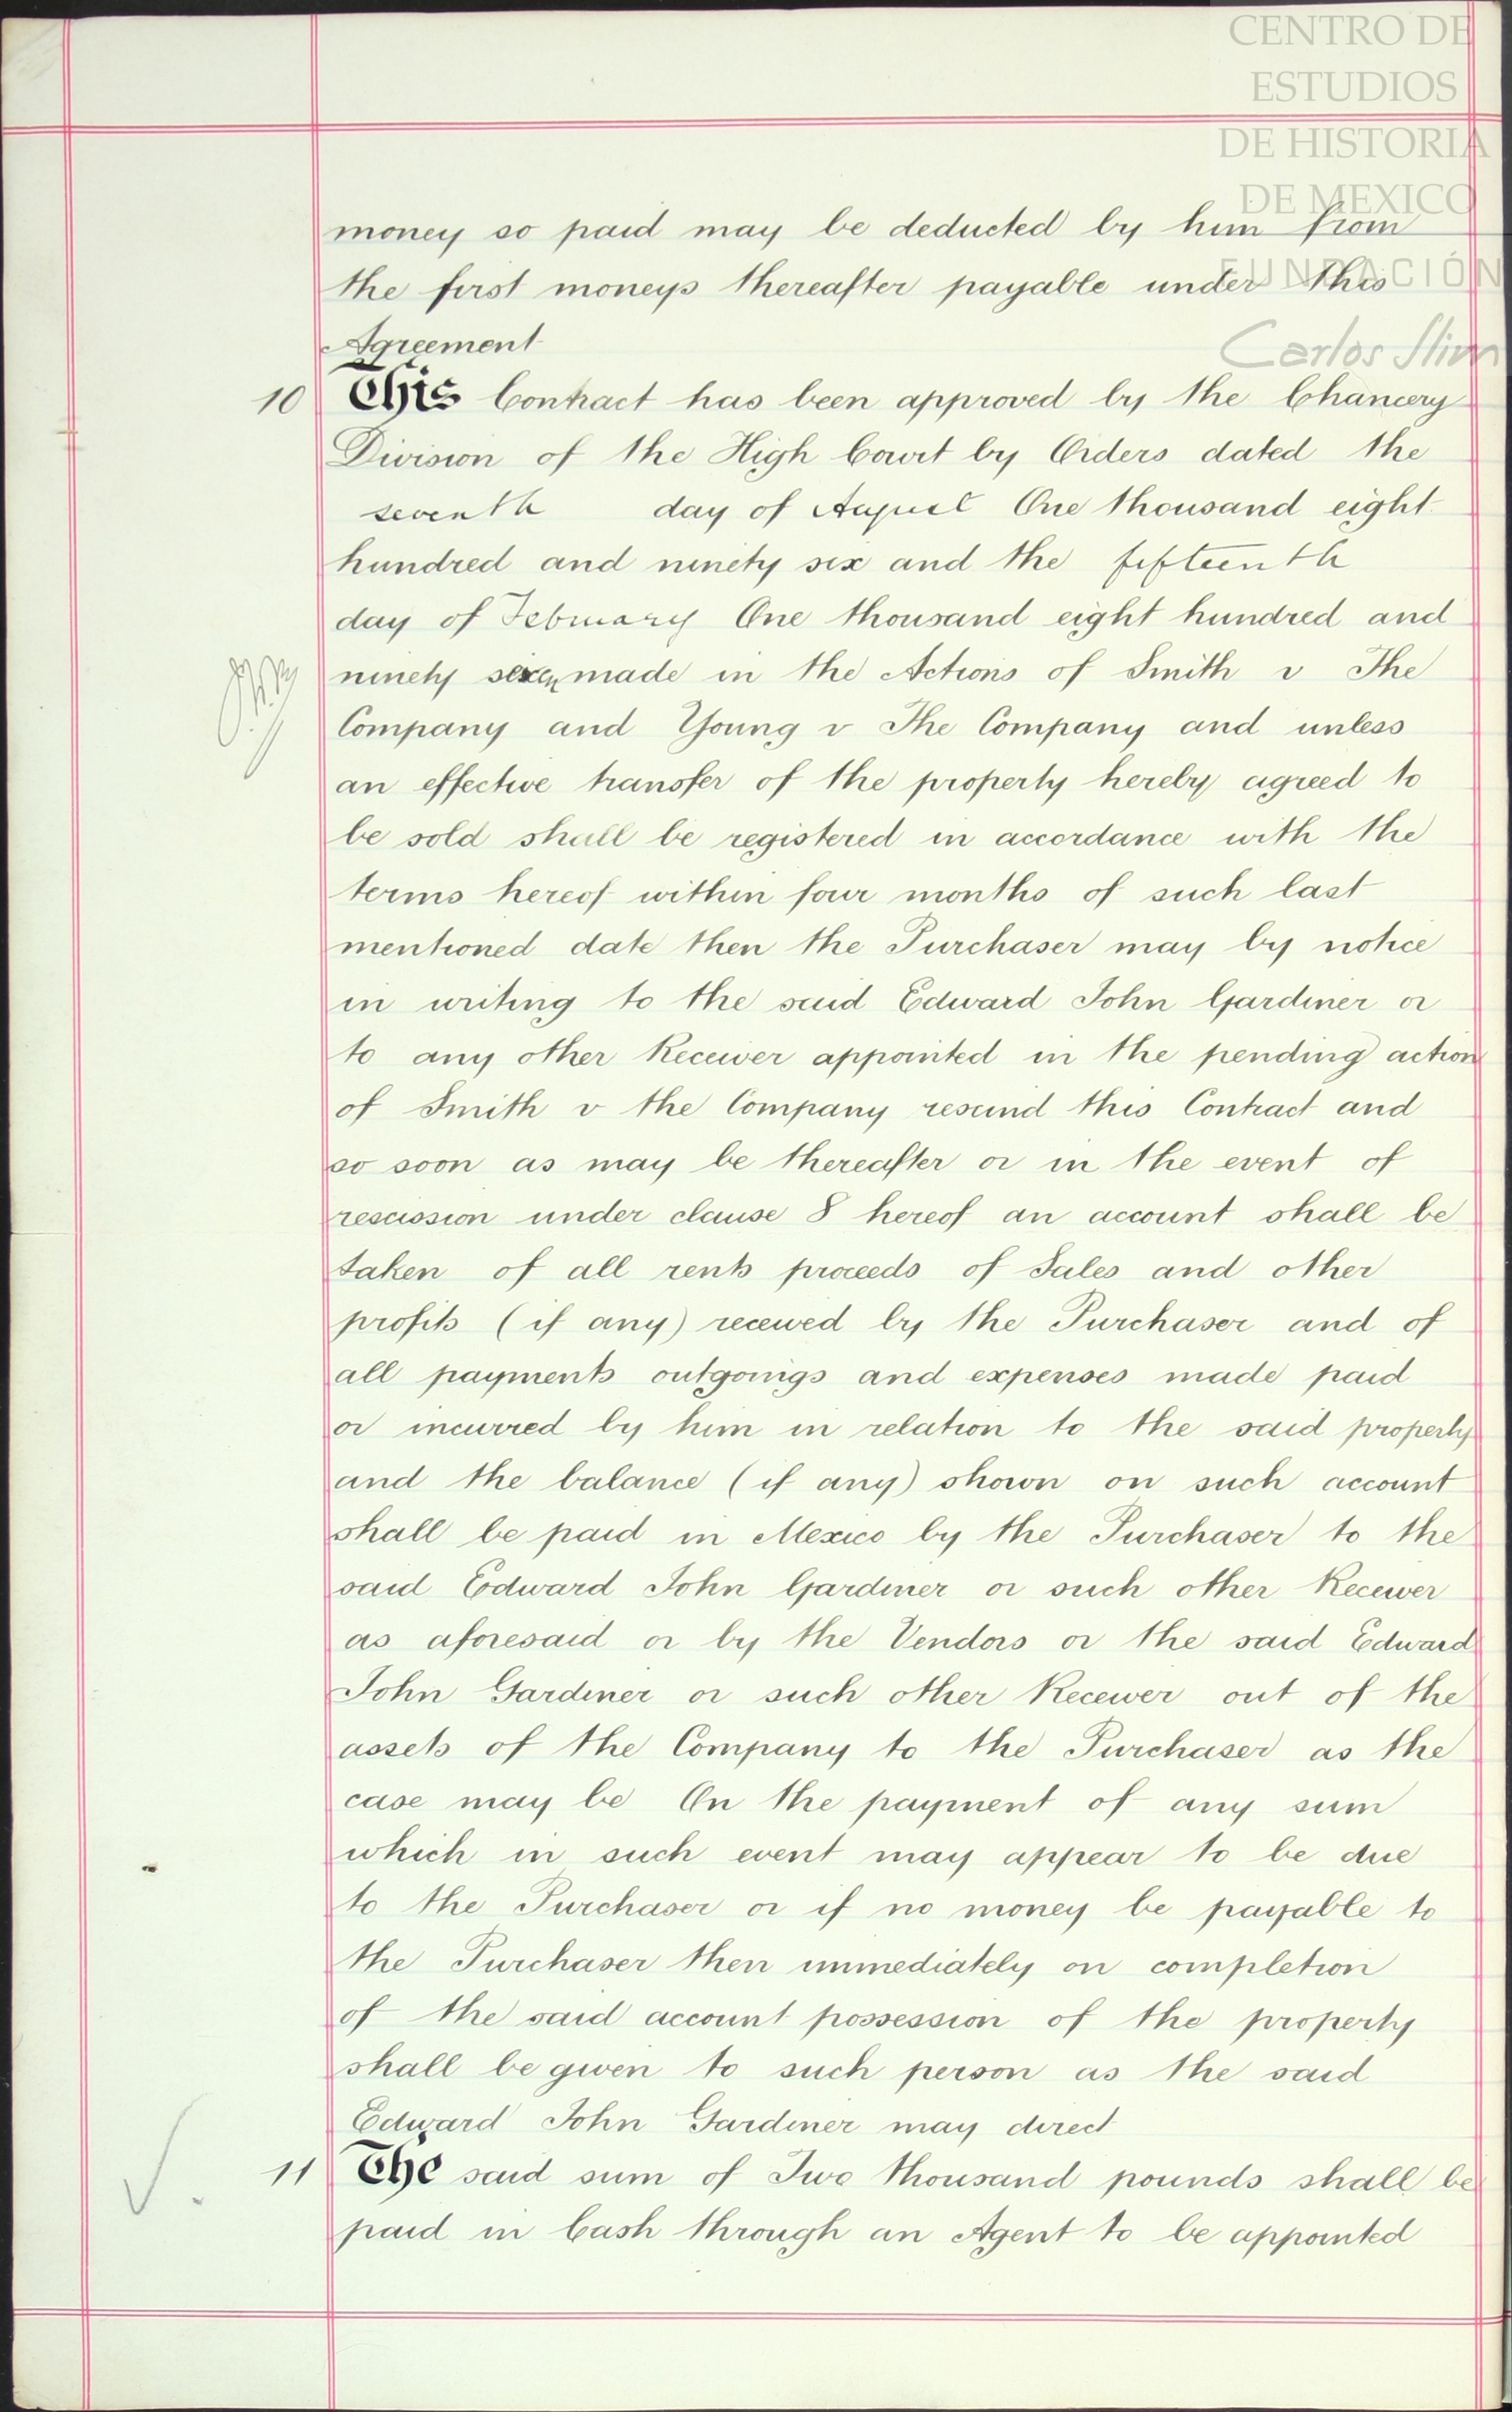 CENTRO DE
ESTUDIOS
DE HISTORIA
DE MEXICO
FUNDACIÓN
Carlos Slim
money so paid may be deducted by him from
the first moneys thereafter payable under this
Agreement
10 This Contract has been approved by the Chancery
Division of the High Court by Orders dated the
seventh day of August One thousand eight
hundred and ninety six and the fifteenth
day of February One thousand eight hundred and
ninety made in the Actions of Smith v The
Company and Young v The Company and unless
an effective transfer of the property hereby agreed to
be sold shall be registered in accordance with the
terms hereof within four months of such last
mentioned date then the Purchaser may by notice
in writing to the said Edward John Gardiner or
to any other Receiver appointed in the pending action
of Smith v the Company rescind this Contract and
so soon as may be thereafter or in the event of
rescission under clause 8 hereof an account shall be
taken of all rents proceeds of Sales and other
profits (if any) received by the Purchaser and of
all payments outgoings and expenses made paid
or incurred by him in relation to the said property
and the balance (if any) shown on such account
shall be paid in Mexico by the Purchaser to the
said Edward John Gardiner or such other Receiver
as aforesaid or by the Vendors or the said Edward
John Gardiner or such other Receiver out of the
assets of the Company to the Purchaser as the
case may be On the payment of any sum
which in such event may appear to be due
to the Purchaser or if no money be payable to
the Purchaser then immediately on completion
of the said account possession of the property
shall be given to such person as the said
Edward John Gardiner may direct
11 The said sum of Two thousand pounds shall be
paid in Cash through an Agent to be appointed